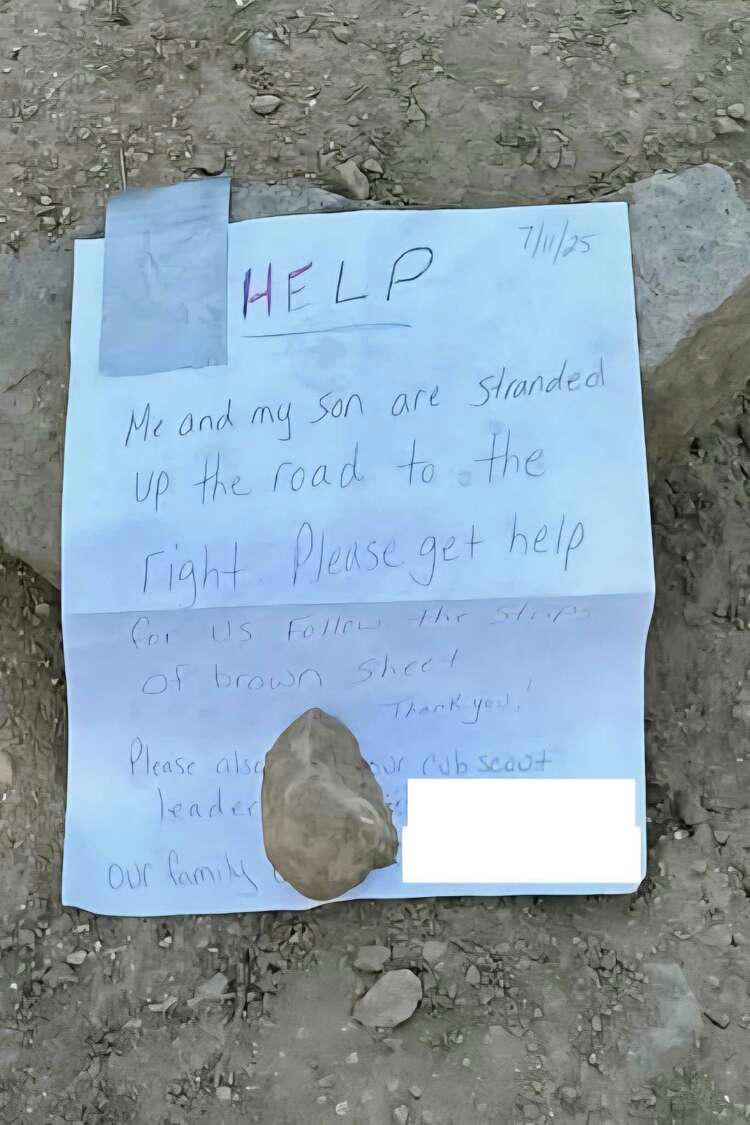 7/11/25
HELP
Me and my son are stranded
up the road to the
right. Please get help
for us Follow the strips
of brown sheet
Thank you!
Please also our cub scout
leader
our family